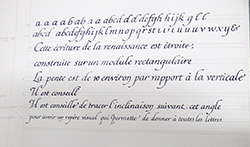 a a a a b a b a a abcd d d defgh hijk g l l
abcd bcdefghijklmnopqrstuvuuuvvwxy&
Cette écriture de la renaissance est étroite ;
construite sur un module rectangulaire
La pente est de 10° environ par rapport à la verticale
Il est conseill
Il est conseillé de tracer l'inclinaison suivant cet angle
pour avoir un repère visuel qui permette de donner à toutes les lettres